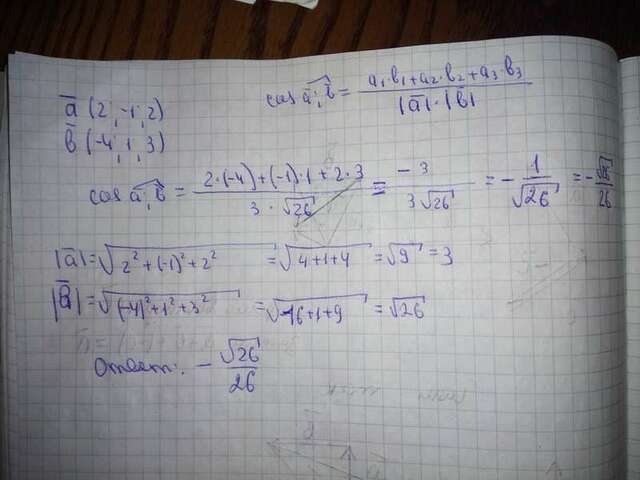 a̅ (2; -1; 2)
b̅ (-4; 1; 3)
cos a̅; b̅ = (a₁·b₁+a₂·b₂+a₃·b₃) / (|a̅|·|b̅|)
cos a̅; b̅ = (2·(-4)+(-1)·1+2·3) / (3·√26) = -3 / (3√26) = -1/√26 = -√26/26
|a̅|=√(2²+(-1)²+2²) =√(4+1+4) =√9 =3
|b̅|=√((-4)²+1²+3²) =√(16+1+9) =√26
Ответ: -√26/26